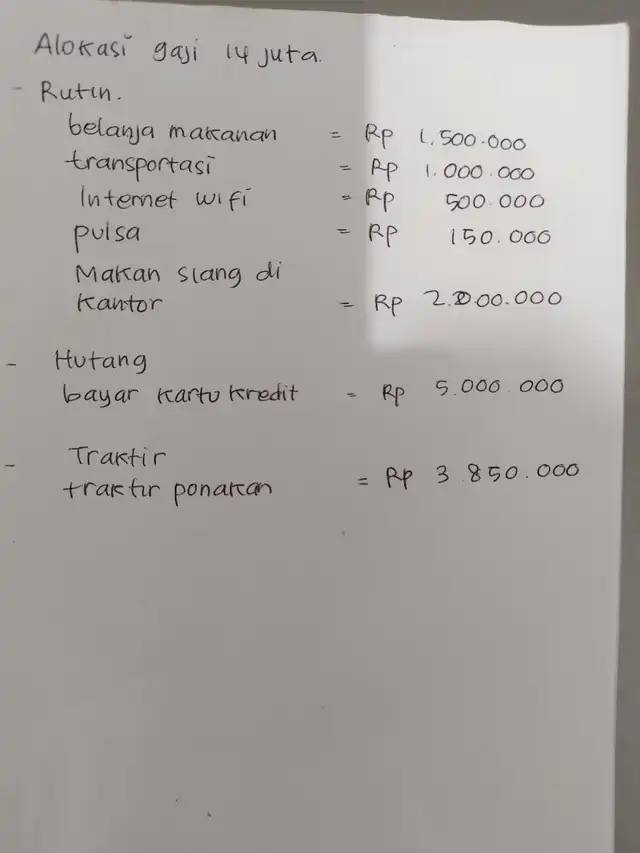 Alokasi gaji 14 juta.
- Rutin.
belanja makanan = Rp 1.500.000
transportasi = Rp 1.000.000
Internet wifi = Rp 500.000
pulsa = Rp 150.000
Makan siang di
kantor = Rp 2.000.000
- Hutang
bayar kartu kredit = Rp 5.000.000
- Traktir
traktir ponakan = Rp 3.850.000